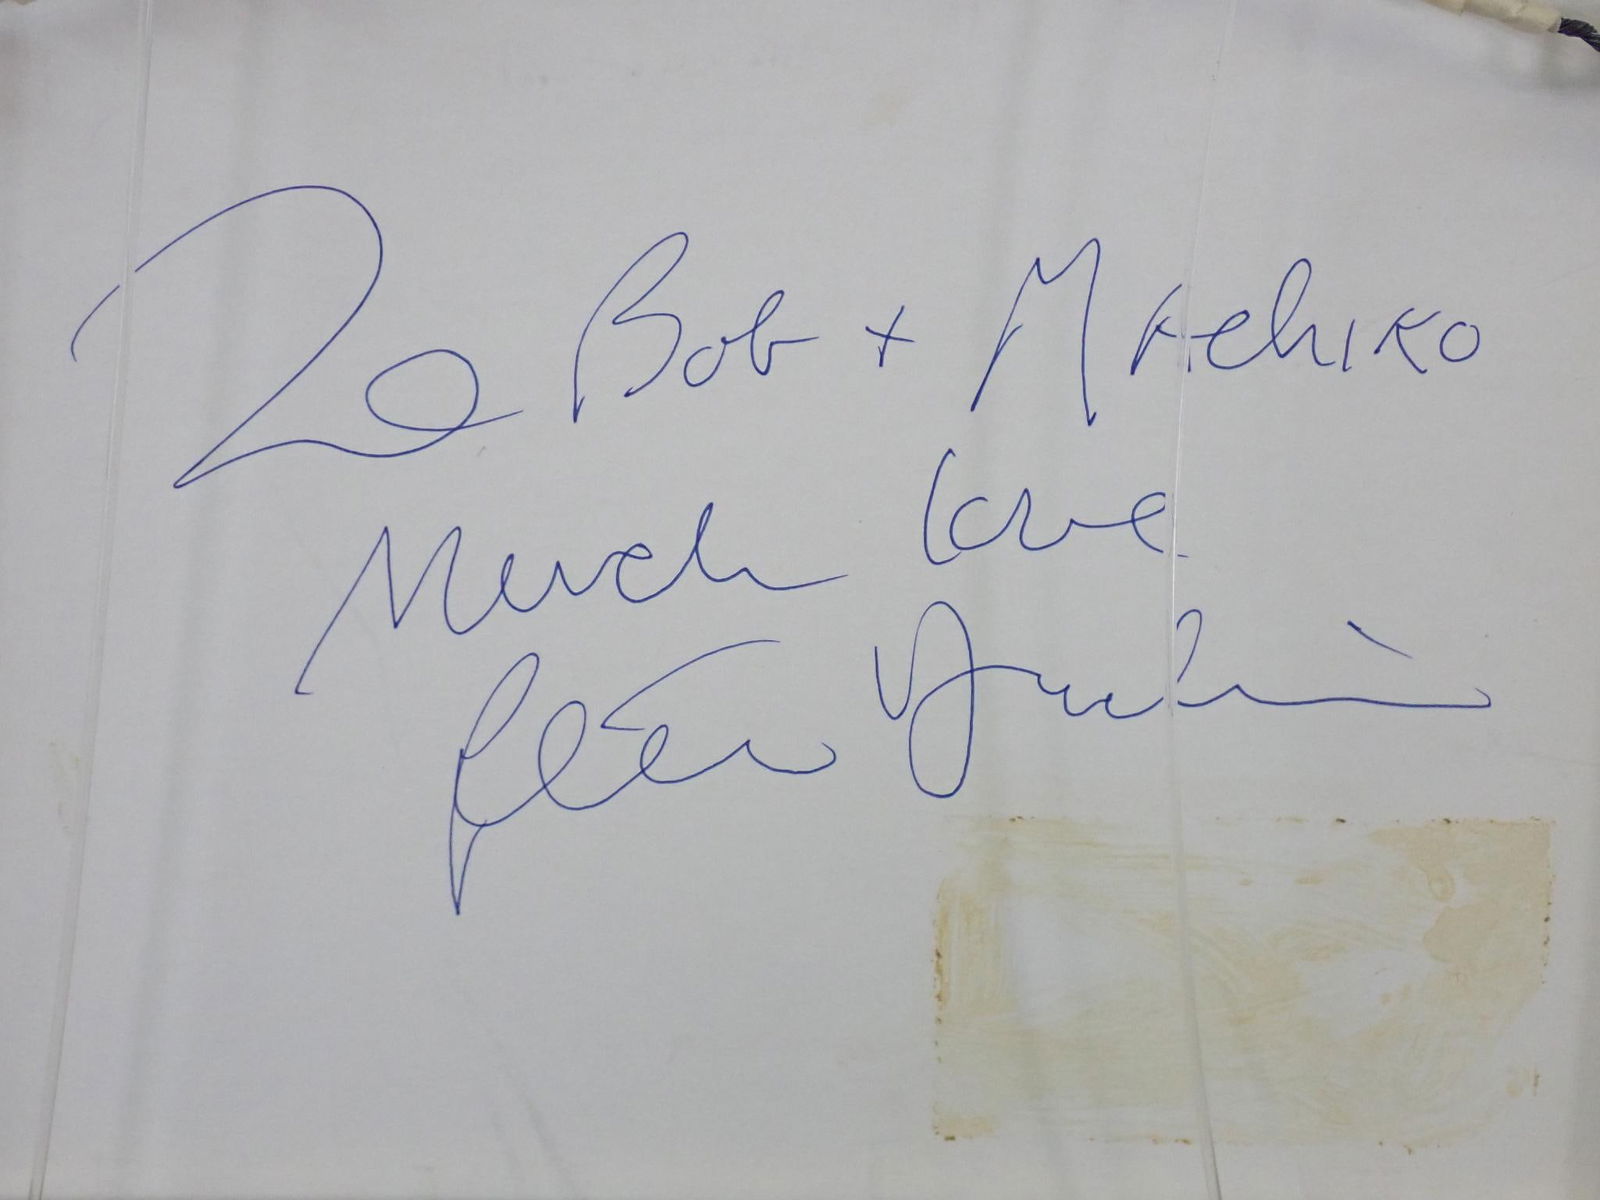 To Bob + Machiko
Much love
Peter